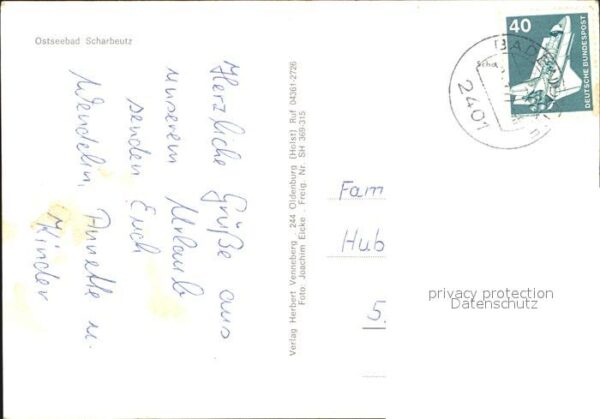 Ostseebad Scharbeutz
Herzliche Grüße aus
unserem Urlaub
senden Euch
Wendelin, Annette u.
Kinder
Verlag Herbert Venneberg 244 Oldenburg (Holst) Ruf 04361-2726
Foto: Joachim Eicke - Freig. Nr. SH 369-315
40
DEUTSCHE BUNDESPOST
2401
Fam
Hub
5.
privacy protection
Datenschutz